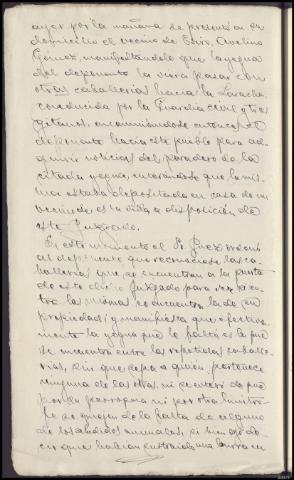 ayer por la mañana se presentó en su
domicilio el vecino de Avelino
Gomez, manifestandole que la yegua
del deponente la viera pasar con
otras caballerias hacia la Laracha
conducida por la Guardia Civil y tres
gitanos, encaminándose entonces el
deponente hacia este pueblo para ad-
quirir noticias del paradero de la
citada yegua, enterandose que la mis-
ma estaba depositada en casa de un
vecino de esta villa a disposición de
este Juzgado.
En este momento el Sr. Juez ordenó
al deponente que reconociese las ca-
ballerias que se encuentran a la puerta
de este edificio Juzgado para ver si en-
tre las mismas se encuentra la de su
propiedad; y manifiesta que efectiva-
mente la yegua que le falta es la que
se encuentra entre las repetidas caballe-
rias, sin que sepa a quien pertenece
ninguna de las otras, ni se enteró de que
por la parroquia ni por otra limitrofe
se quejen de la falta de alguno
de los aludidos animales, si bien oyó de-
cir que habian sustraido una burra en